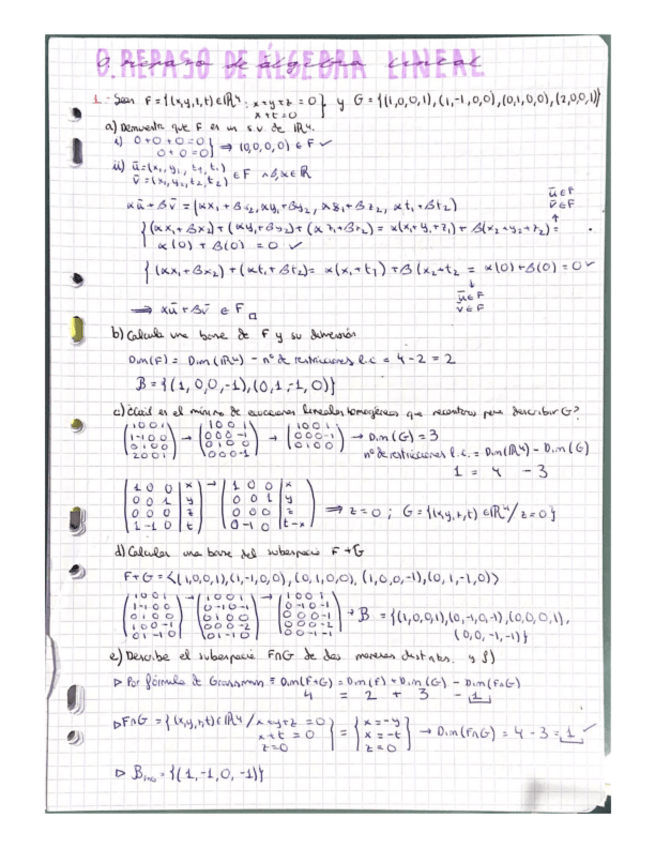 0. REPASO DE ÁLGEBRA LINEAL
1.- Sean F = {(x,y,z,t) ∈ ℝ⁴ : x+y+z = 0 y G = {(1,0,0,1), (1,-1,0,0), (0,1,0,0), (2,0,0,1)}
x+t=0}
a) Demuestra que F es un s.v de ℝ⁴.
i) 0+0+0=0
0+0=0} ⇒ (0,0,0,0) ∈ F ✓
ii) ū=(x₁, y₁, z₁, t₁)
v̄=(x₂, y₂, z₂, t₂) ∈ F ∧ β,α ∈ ℝ
αū + βv̄ = (αx₁+βx₂, αy₁+βy₂, αz₁+βz₂, αt₁+βt₂)
ū∈F
v̄∈F
{(αx₁+βx₂)+(αy₁+βy₂)+(αz₁+βz₂) = α(x₁+y₁+z₁) + β(x₂+y₂+z₂) =
α(0) + β(0) = 0 ✓
{(αx₁+βx₂)+(αt₁+βt₂) = α(x₁+t₁) + β(x₂+t₂ = α(0)+β(0) = 0 ✓
ū∈F
v∈F
⇒ αū+βv̄ ∈ F □
b) Calcula una base de F y su dimensión
Dim(F) = Dim(ℝ⁴) - nº de restricciones l.c = 4-2 = 2
B = {(1,0,0,-1), (0,1,-1,0)}
c) ¿Cuál es el mínimo de ecuaciones lineales homogéneas que necesitamos para describir G?
(1 0 0 1 → (1 0 0 1 → (1 0 0 1 → Dim(G) = 3
1 -1 0 0 0 0 0 -1 0 0 0 -1
0 1 0 0 0 1 0 0 0 1 0 0)
2 0 0 1) 0 0 0 -1)
nº de restricciones l.c. = Dim(ℝ⁴) - Dim(G)
1 = 4 - 3
(1 0 0 | x → (1 0 0 | x
0 0 1 | y 0 0 1 | y
0 0 0 | z 0 0 0 | z
1 -1 0 | t) 0 -1 0 | t-x)
⇒ z=0 ; G = {(x,y,z,t) ∈ ℝ⁴ / z=0}
d) Calcular una base del subespacio F+G
F+G = <(1,0,0,1), (1,-1,0,0), (0,1,0,0), (1,0,0,-1), (0,1,-1,0)>
(1 0 0 1 → (1 0 0 1 → (1 0 0 1
1 -1 0 0 0 -1 0 -1 0 -1 0 -1
0 1 0 0 0 1 0 0 0 0 0 -1
1 0 0 -1 0 0 0 -2 0 0 0 -2
0 1 -1 0) 0 1 -1 0) 0 0 -1 -1)
→ B = {(1,0,0,1), (0,-1,0,-1), (0,0,0,1),
(0,0,-1,-1)}
e) Describe el subespacio F∩G de dos maneras distintas. y f)
▷ Por fórmula de Grassmann = Dim(F+G) = Dim(F) + Dim(G) - Dim(F∩G)
4 = 2 + 3 - 1
▷ F∩G = {(x,y,z,t) ∈ ℝ⁴ / x+y+z = 0 = {x=-y → Dim(F∩G) = 4-3 = 1 ✓
x+t = 0 x=-t
z=0} z=0
▷ B = {(1,-1,0,-1)}